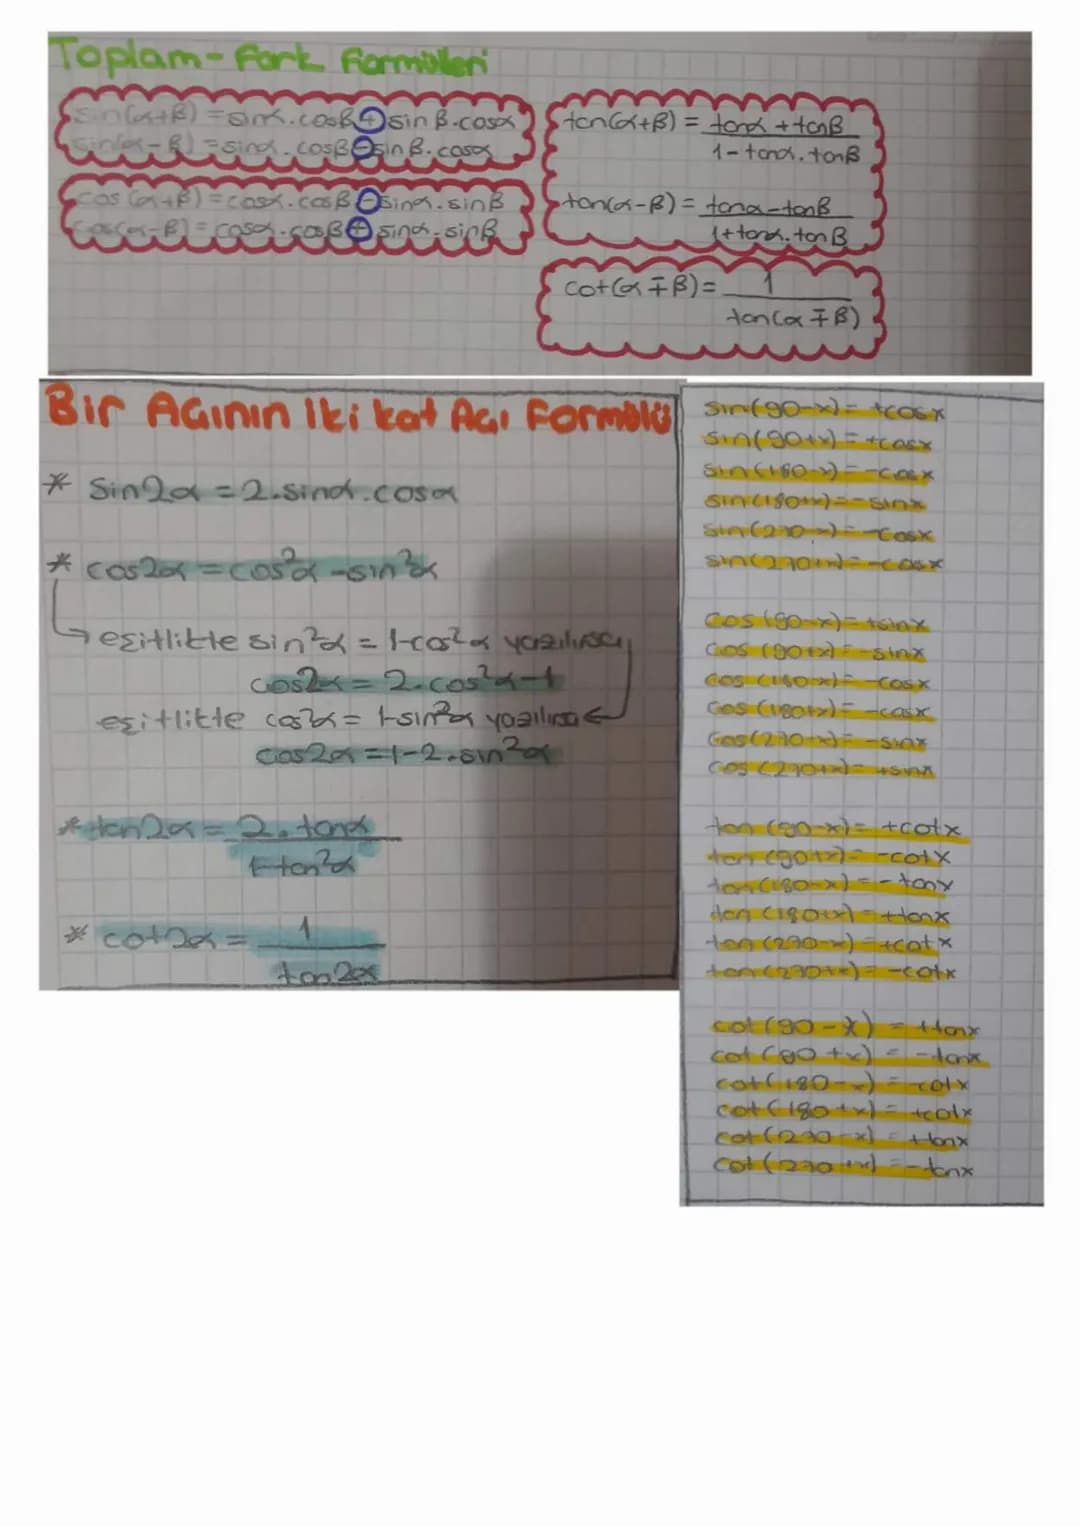 Toplam-Fark Formülleri
sin(α+β)=sinα.cosβ+sinβ.cosα
sin(α-β)=sinα.cosβ-sinβ.cosα
cos(α+β)=cosα.cosβ-sinα.sinβ
cos(α-β)=cosα.cosβ+sinα.sinβ
tan(α+β)= tanα+tanβ
1-tanα.tanβ
tan(α-β)= tanα-tanβ
1+tanα.tanβ
cot(α∓β)= 1
tan(α∓β)
Bir Açının İki kat Açı Formülü
* Sin2α=2.sinα.cosα
* cos2α=cos²α-sin²α
eşitlikte sin²α=1-cos²α yazılırsa
cos2α=2.cos²α-1
eşitlikte cos²α=1-sin²α yazılırsa
cos2α=1-2.sin²α
* tan2α= 2.tanα
1-tan²α
* cot2α= 1
tan2α
sin(90-x)=+cosx
sin(90+x)=+cosx
sin(180-x)=-cosx
sin(180+x)=-sinx
sin(270-x)=-cosx
sin(270+x)=-cosx
cos(90-x)=+sinx
cos(90+x)=-sinx
cos(180-x)=-cosx
cos(180+x)=-cosx
cos(270-x)=-sinx
cos(270+x)=+sinx
tan(90-x)=+cotx
tan(90+x)=-cotx
tan(180-x)=-tanx
tan(180+x)=+tanx
tan(270-x)=+cotx
tan(270+x)=-cotx
cot(90-x)=+tanx
cot(90+x)=-tanx
cot(180-x)=-cotx
cot(180+x)=+cotx
cot(270-x)=+tanx
cot(270+x)=-tanx